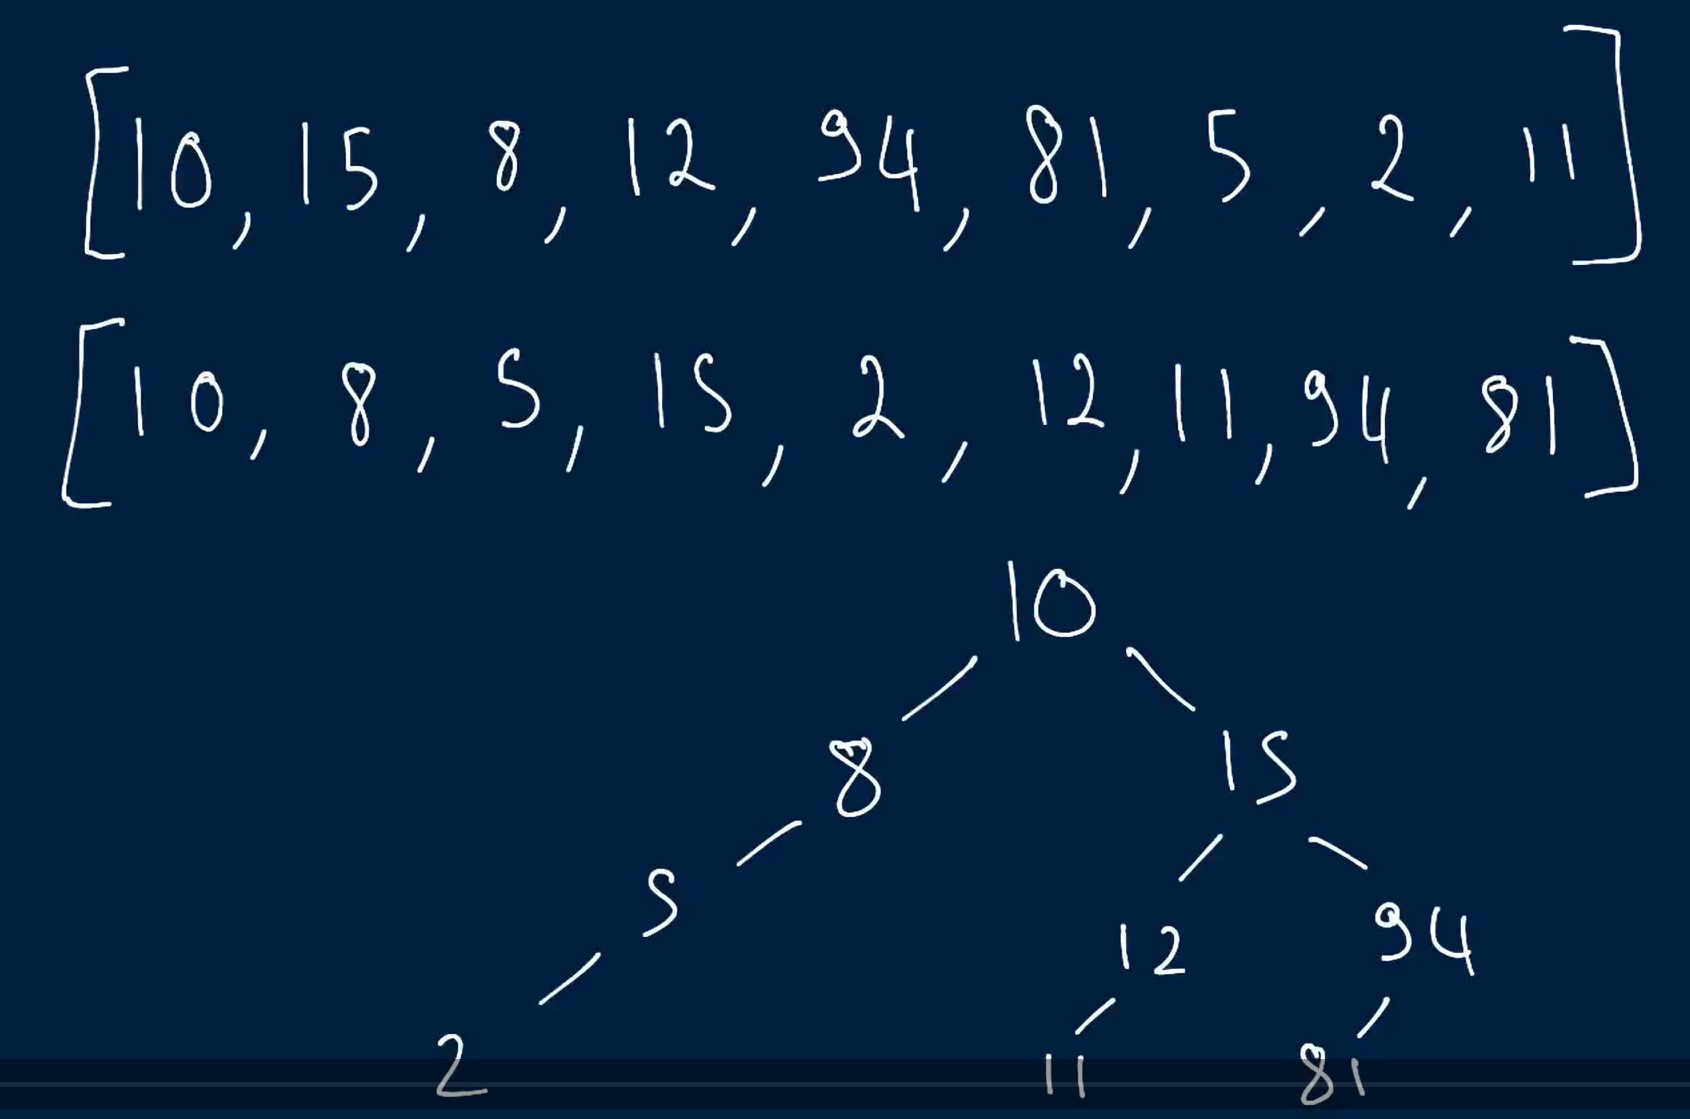 [10, 15, 8, 12, 94, 81, 5, 2, 11]
[10, 8, 5, 15, 2, 12, 11, 94, 81]
10
8 15
5 12 94
2 11 81